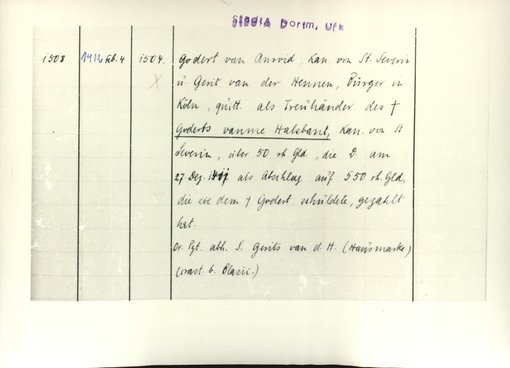 StadtA Dortm. Urk
1508 1412 Feb. 4 1504. Godert van Anroid, Kan. von St. Severin
X u. Gerit van der Hennen, Bürger in
Köln, quitt. als Treuhänder des †
Goderts vanme Halsbant, Kan. von St
Severin, über 50 rh. Gld, die D. am
27 Dez. als Abschlag auf 550 rh. Gld,
die sie dem † Godert schuldete, gezahlt
hat.
Or. Pgt. abh. S. Gerits van d. H. (Hausmarke)
(crast. b. Blasii.)